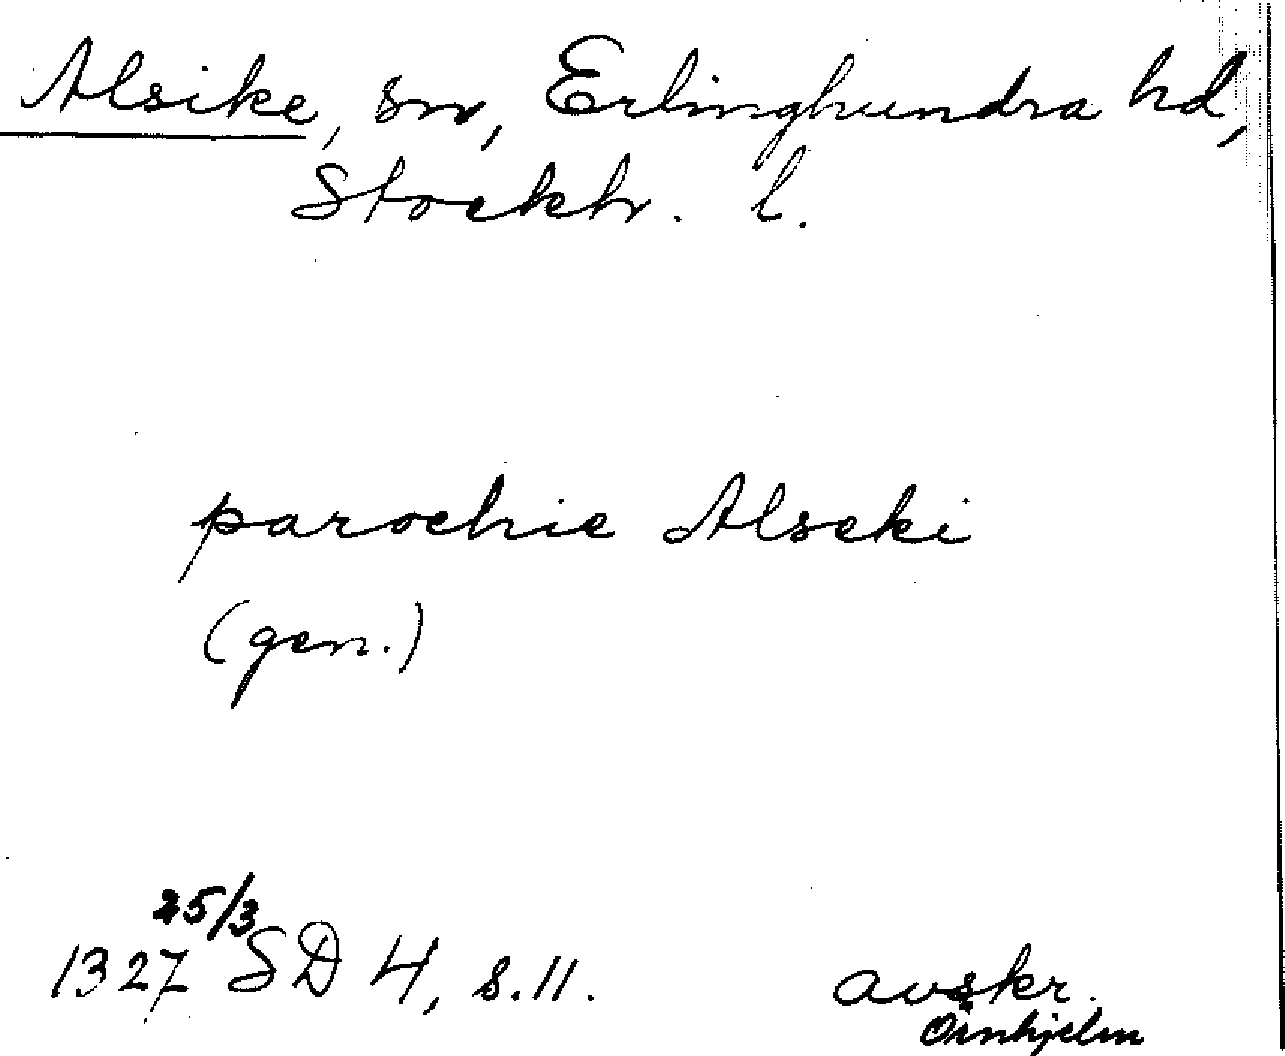 Alsike, sn, Erlinghundra hd,
Stockh. l.
parochie Alseki
(gen.)
1327 25/3 SD 4, s. 11. avskr.
Örnhjelm